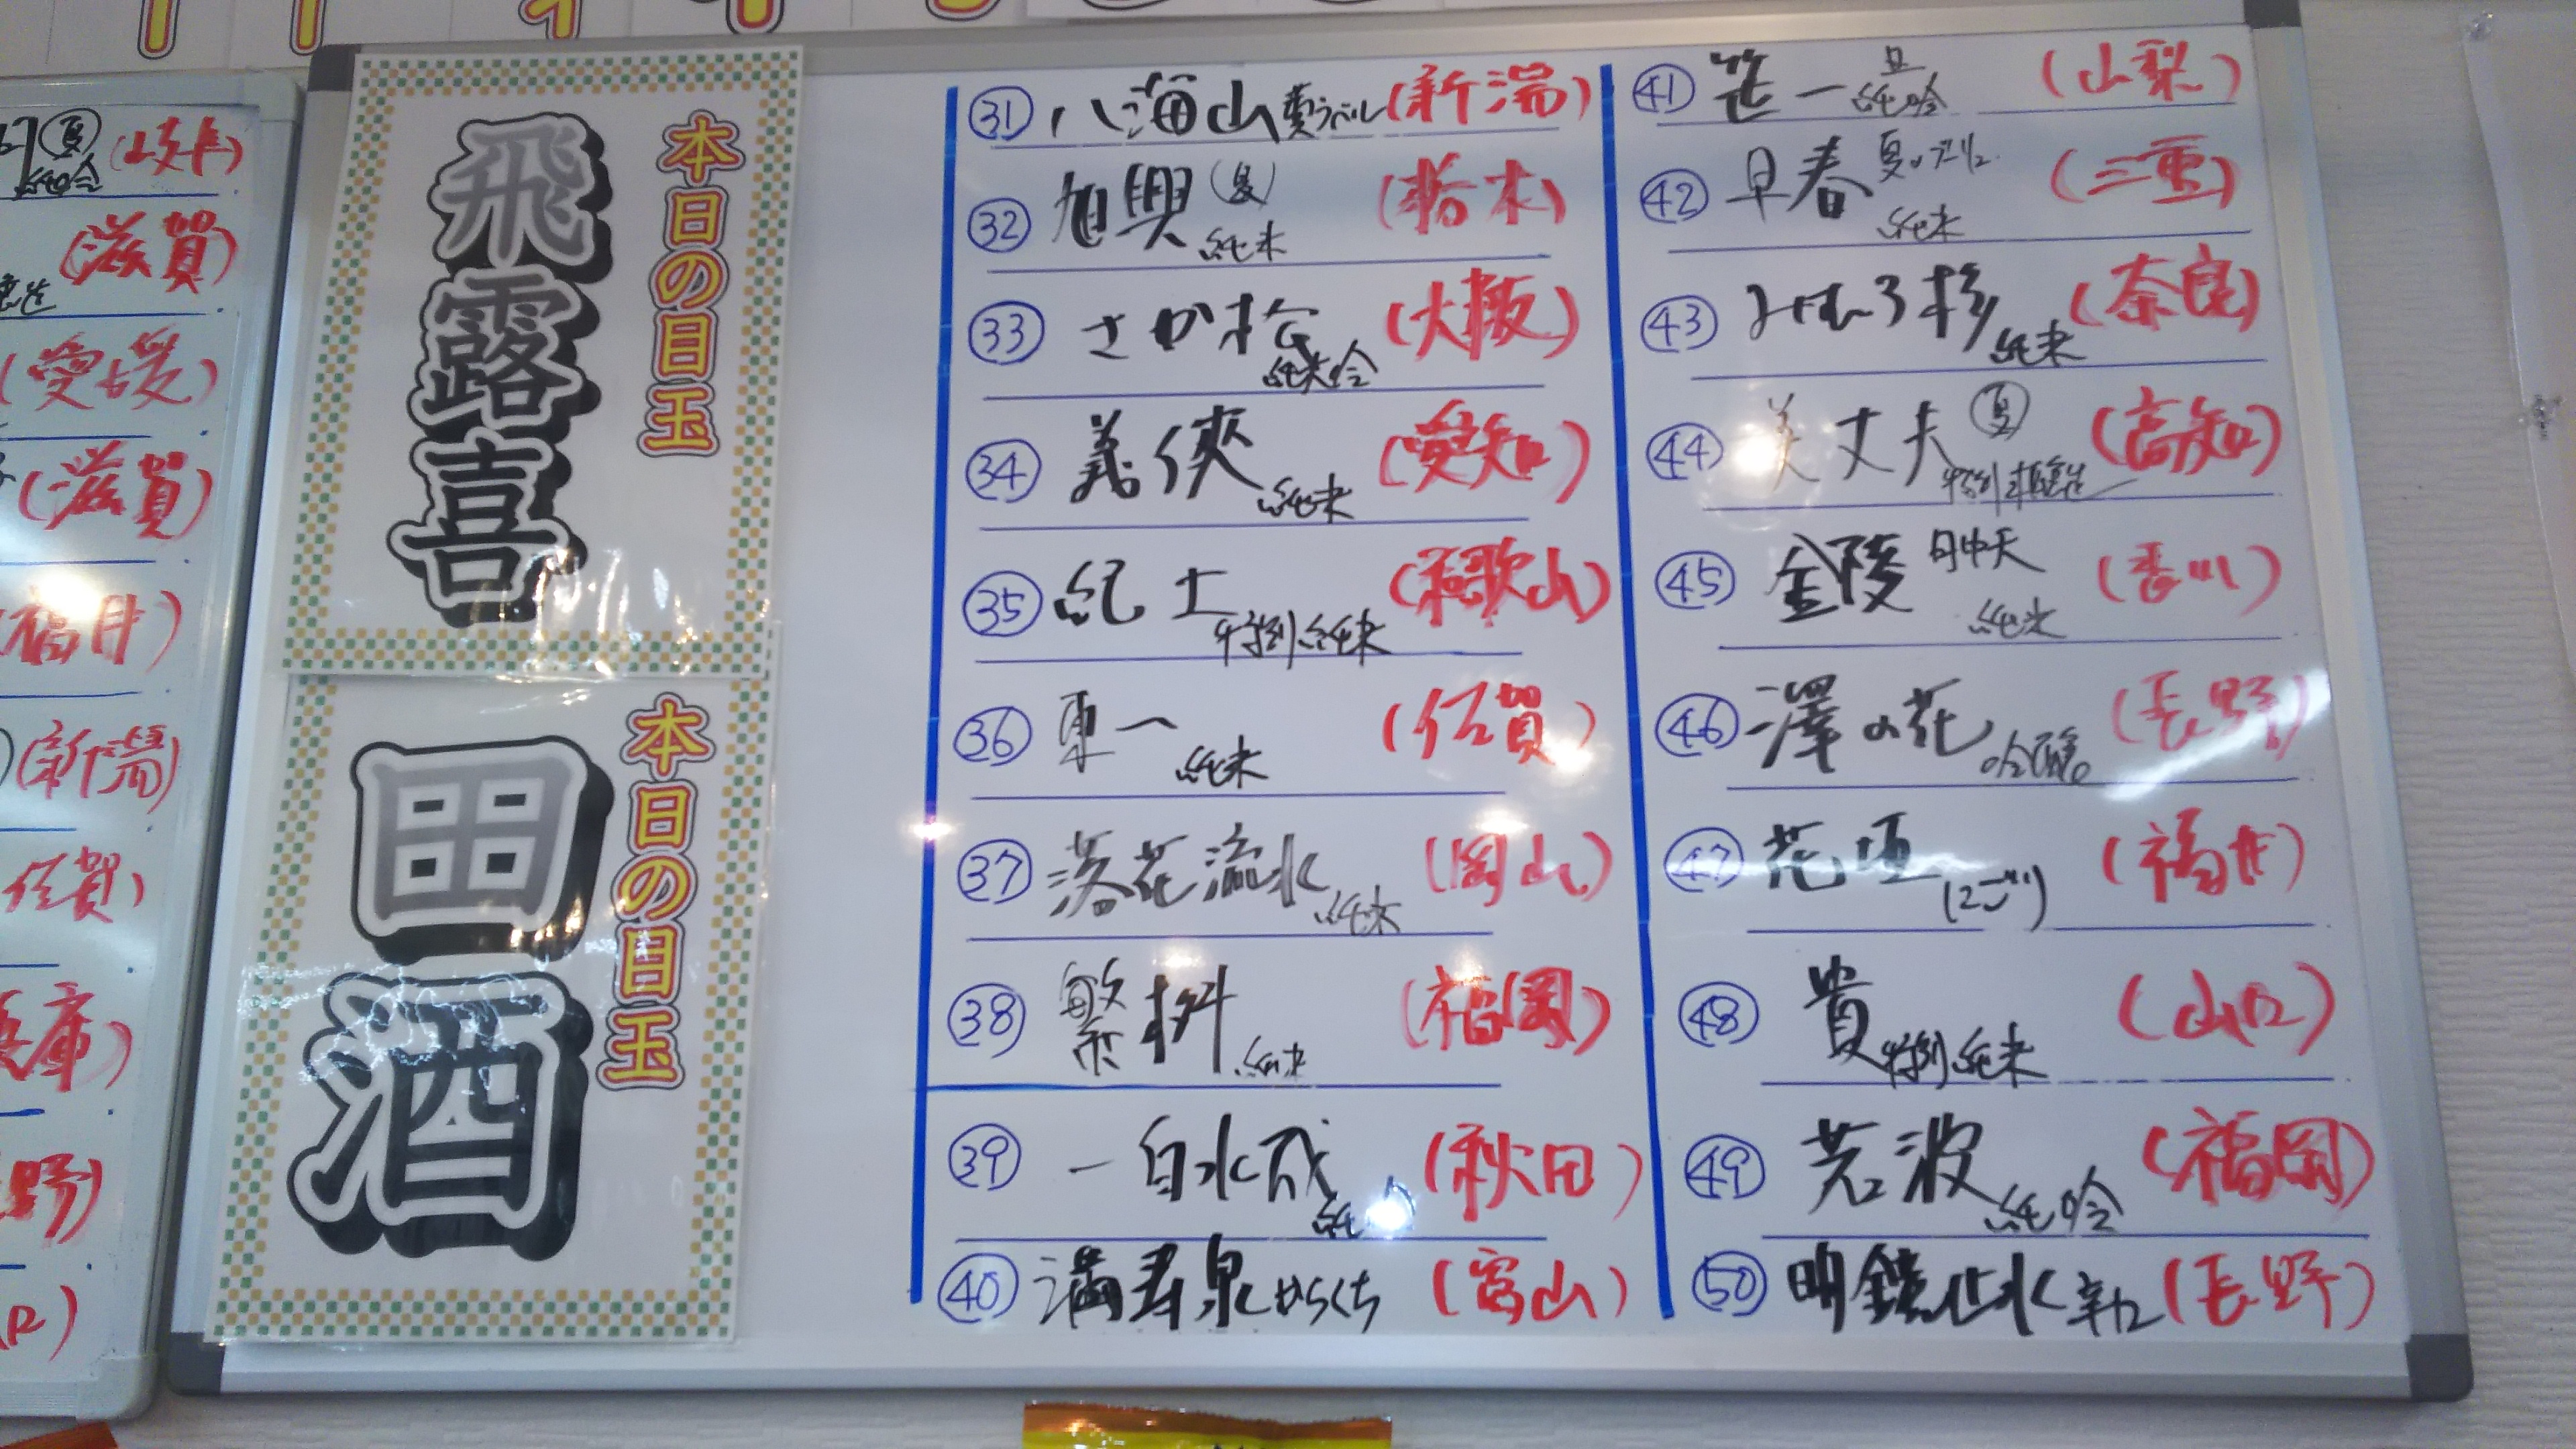 (岐阜)
(滋賀)
(愛媛)
(滋賀)
福井)
(新潟)
佐賀)
兵庫)
野)
口)
本日の目玉
飛露喜
本日の目玉
田酒
㉛ 八海山 (新潟)
㉜ 旭興 (夏) 純米 (栃木)
㉝ さか松 純米吟 (大阪)
㉞ 義侠 純米 (愛知)
㉟ 紀土 特別純米 (和歌山)
㊱ 東一 純米 (佐賀)
㊲ 落花流水 純米 (岡山)
㊳ 繁桝 純米 (福岡)
㊴ 一白水成 (秋田)
㊵ 満寿泉 からくち (富山)
㊶ 笹一 旦 純吟 (山梨)
㊷ 早春 純米 (三重)
㊸ みむろ杉 純米 (奈良)
㊹ 美丈夫 夏 (高知)
㊺ 金陵 月中天 純米 (香川)
㊻ 澤の花 吟醸 (長野)
㊼ 花垣 (にごり) (福井)
㊽ 貴 特別純米 (山口)
㊾ 若波 純吟 (福岡)
㊿ 明鏡止水 辛口 (長野)